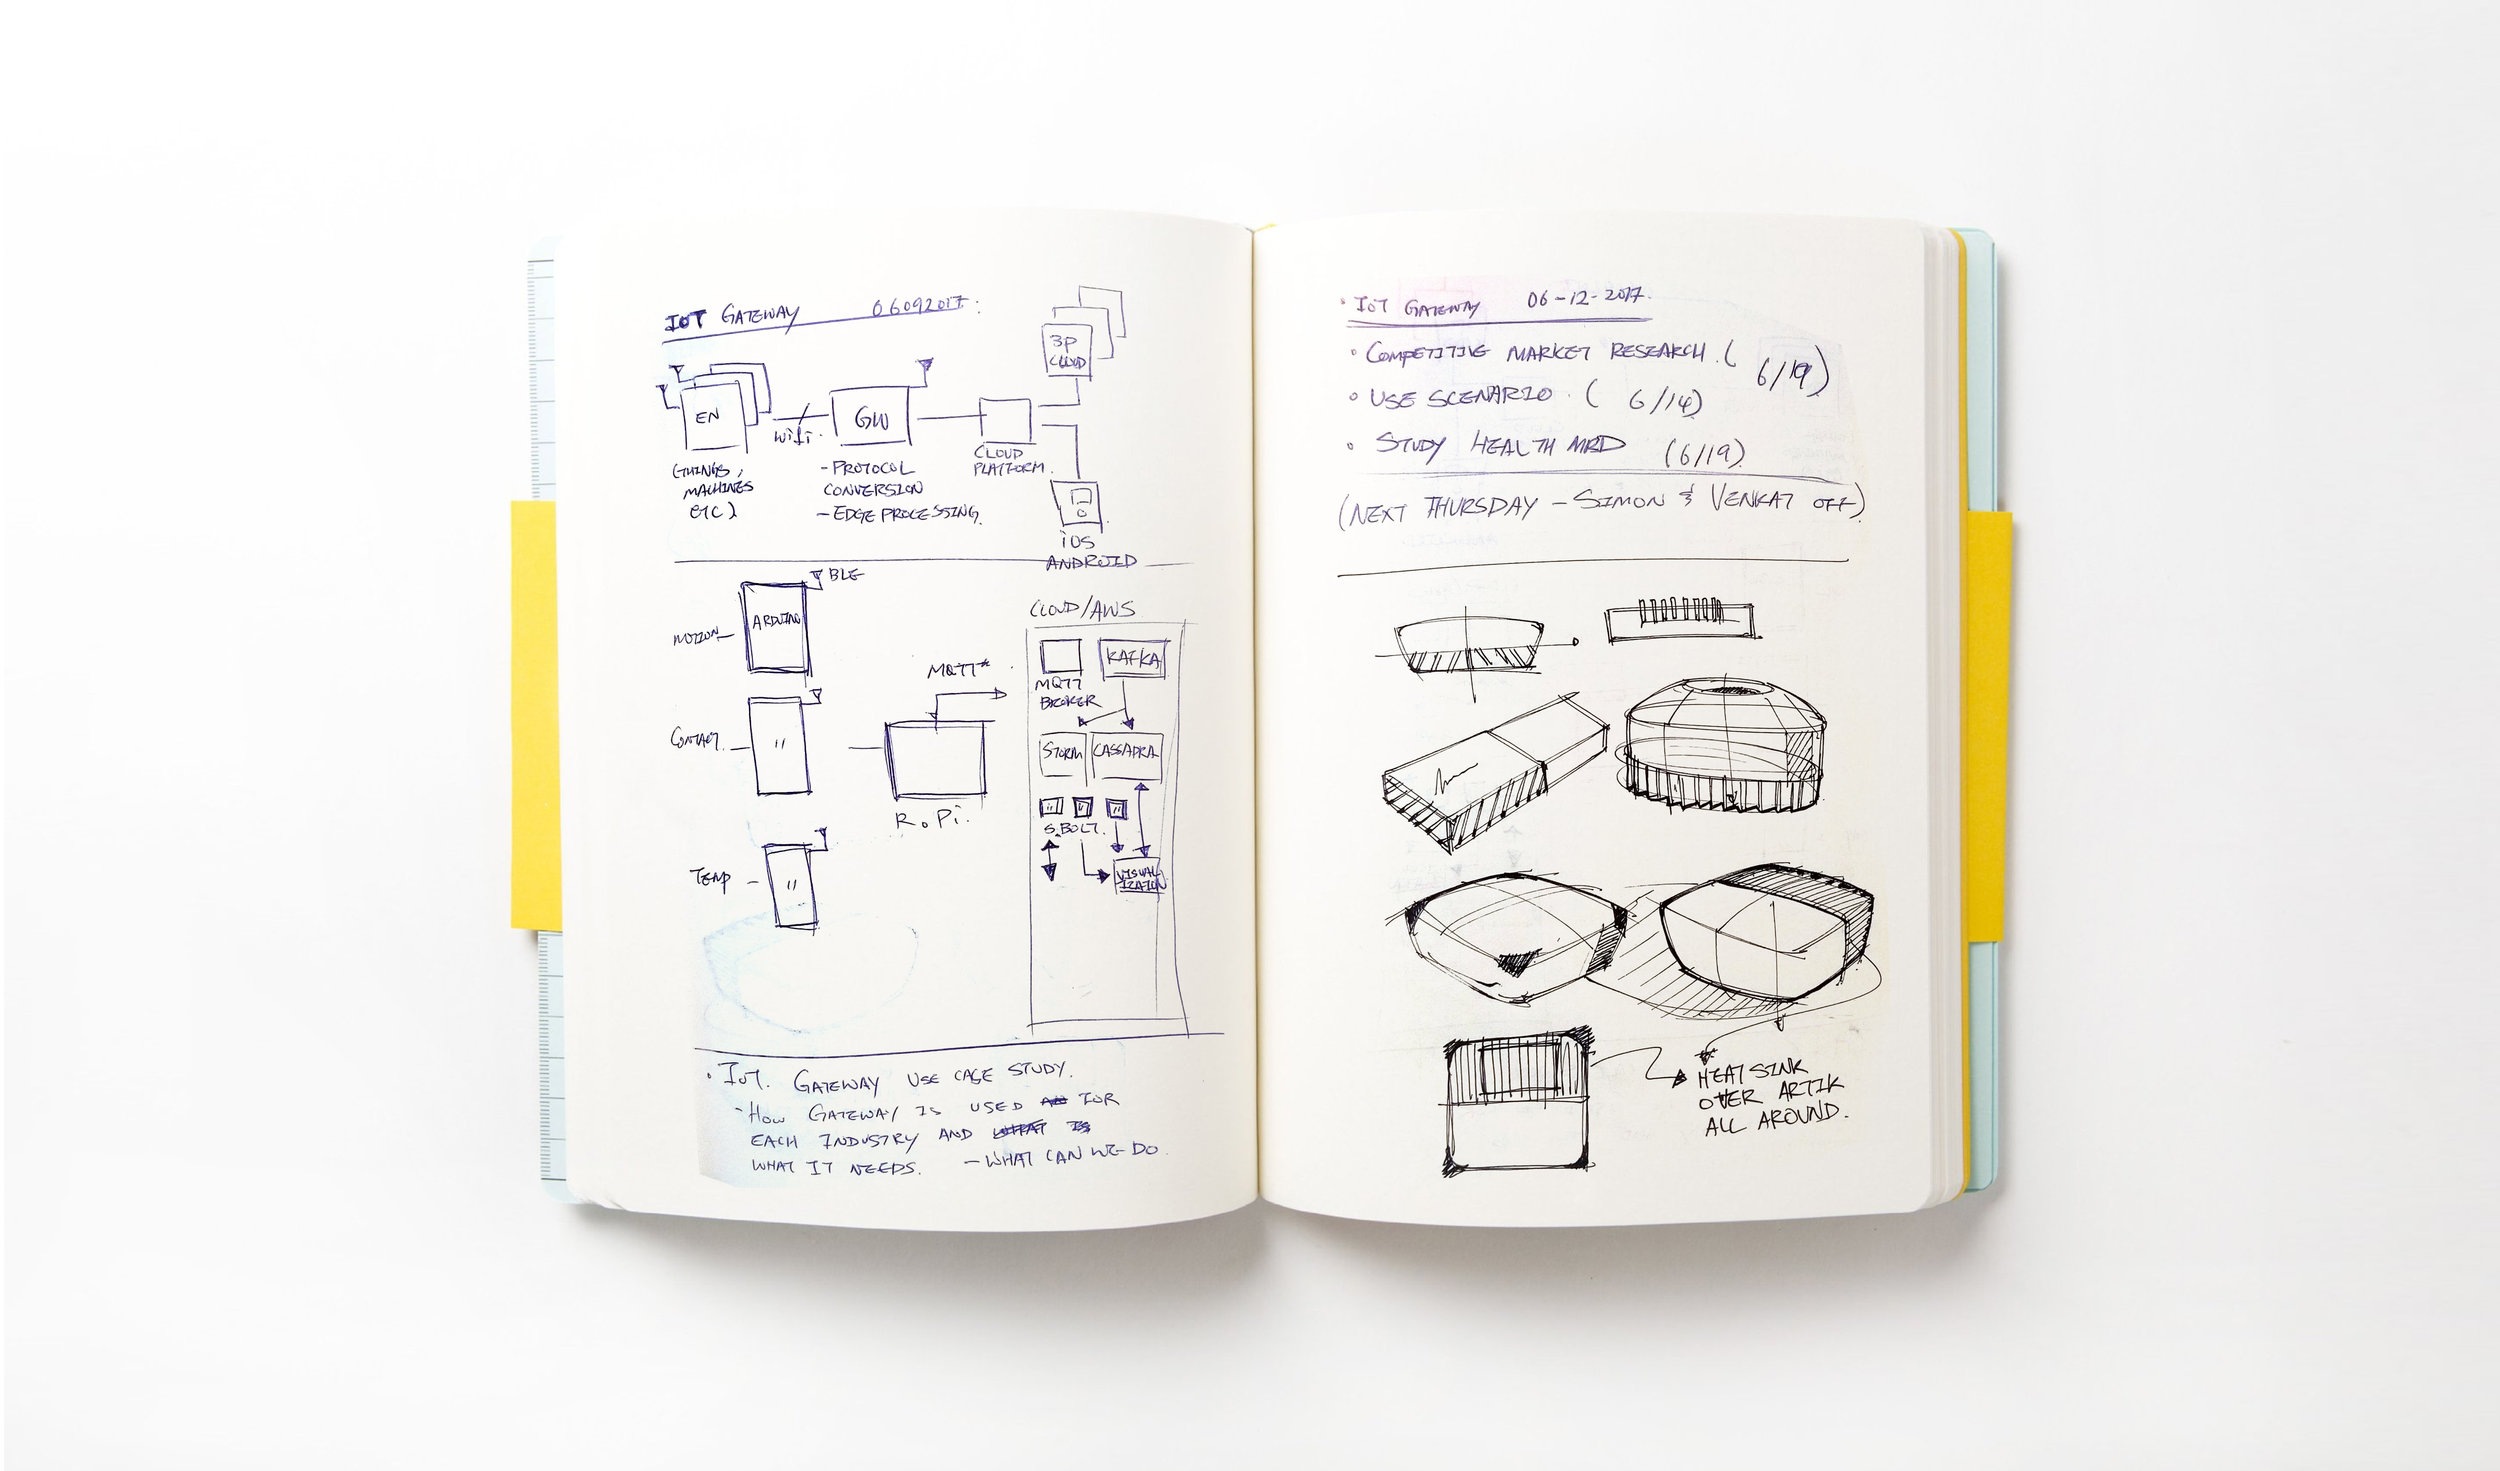 IOT GATEWAY 06092017.
3P
CLOUD
EN
WiFi.
GW
CLOUD
PLATFORM.
(THINGS,
MACHINES
ETC)
- PROTOCOL
CONVERSION
- EDGE PROCESSING.
iOS
ANDROID
BLE
ARDUINO
MOTION
CONTACT.
"
TEMP
"
MQTT*
R.Pi.
CLOUD/AWS
KAFKA
MQTT
BROKER
STORM
CASSADRA
S.BOLT.
VISUAL
IZATION
• IOT. GATEWAY USE CASE STUDY.
- HOW GATEWAY IS USED FOR
EACH INDUSTRY AND WHAT IS
WHAT IT NEEDS. - WHAT CAN WE DO.
• IOT GATEWAY 06-12-2017.
• COMPETITIVE MARKET RESEARCH. (6/19)
• USE SCENARIO. (6/14)
• STUDY HEALTH MRD (6/19)
(NEXT THURSDAY - SIMON & VENKAT OFF)
HEAT SINK
OVER ARTIK
ALL AROUND.